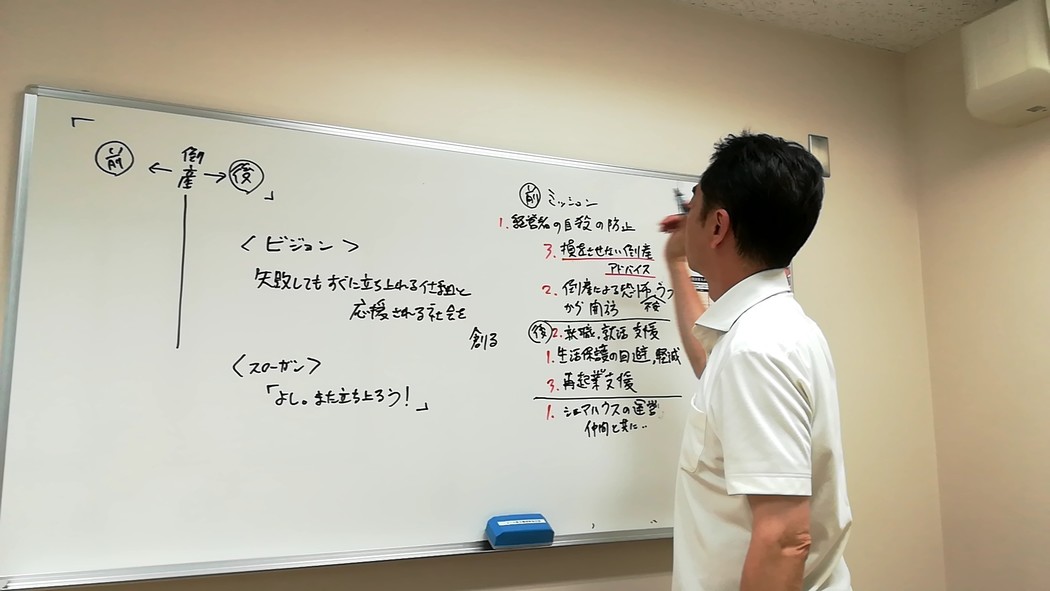 「
前 ← 倒産 → 後
」
〈ビジョン〉
失敗してもすぐに立ち上れる仕組と
応援される社会を
創る
〈スローガン〉
「よし。また立ち上ろう!」
前 ミッション
1. 経営者の自殺の防止
3. 損をさせない倒産
アドバイス
2. 倒産による恐怖、うつ
から
後 2. 転職、就活 支援
1. 生活保護の回避、軽減
3. 再起業支援
1. シェアハウスの運営
仲間と共に..